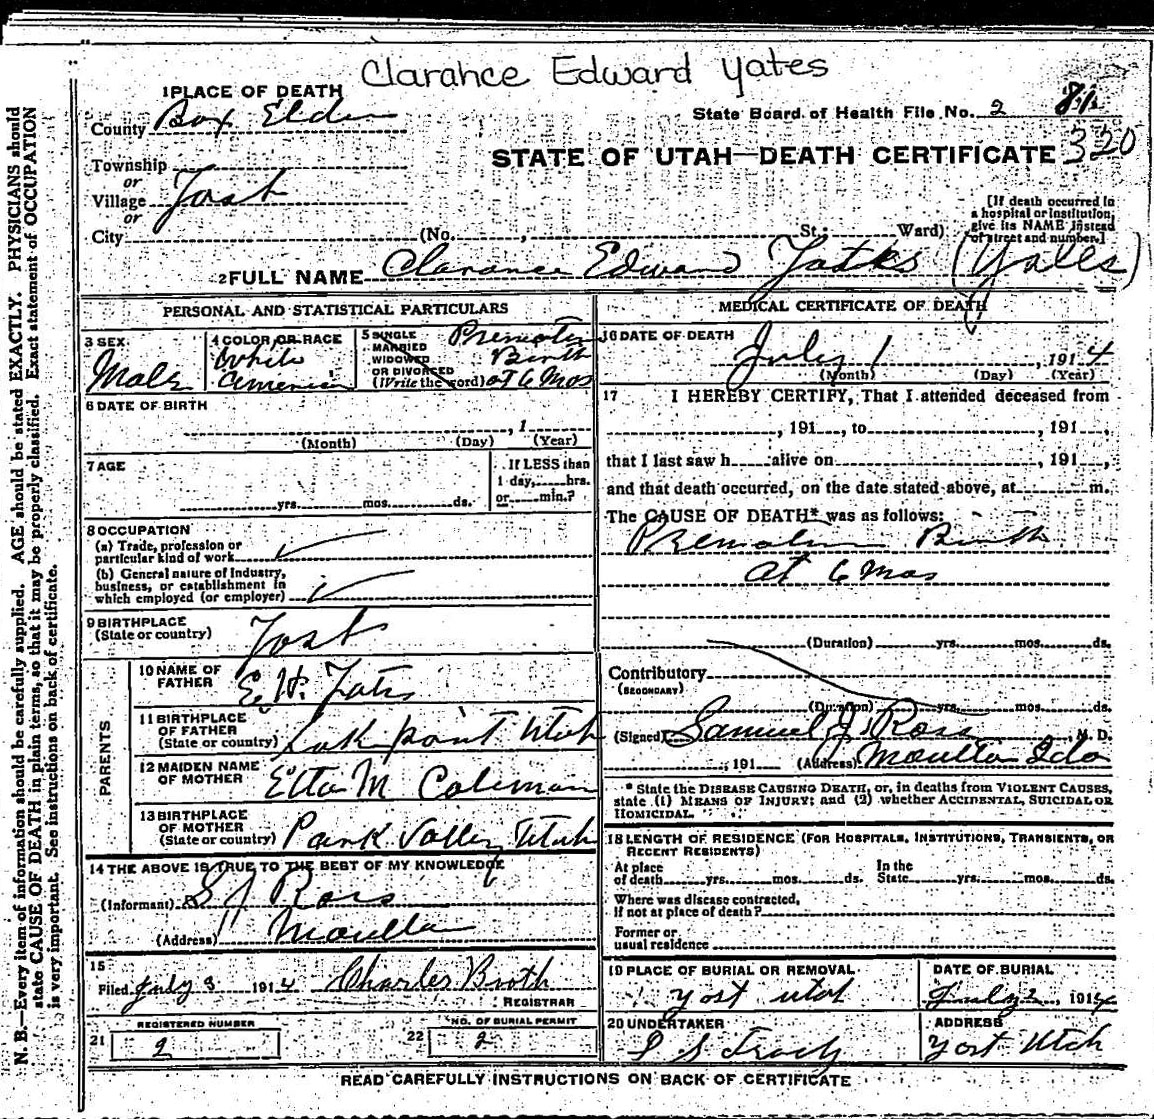 Clarance Edward Yates
1 PLACE OF DEATH
County Box Elder
State Board of Health File No. 2 81
320
STATE OF UTAH—DEATH CERTIFICATE
Township
or
Village Yost
or
City (No. , St.; Ward)
[If death occurred in
a hospital or institution,
give its NAME instead
of street and number.]
2 FULL NAME Clarance Edward Yates (Yates)
PERSONAL AND STATISTICAL PARTICULARS
3 SEX
Male
4 COLOR OR RACE
White
American
5 SINGLE
MARRIED
WIDOWED
OR DIVORCED
(Write the word)
Premature
Birth
at 6 Mos
6 DATE OF BIRTH
, 1
(Month) (Day) (Year)
7 AGE
yrs. mos. ds.
If LESS than
1 day, hrs.
or min.?
8 OCCUPATION
(a) Trade, profession or
particular kind of work
(b) General nature of Industry,
business, or establishment in
which employed (or employer)
9 BIRTHPLACE
(State or country) Yost
PARENTS
10 NAME OF
FATHER E. H. Yates
11 BIRTHPLACE
OF FATHER
(State or country) Lake point Utah
12 MAIDEN NAME
OF MOTHER Etta M Coleman
13 BIRTHPLACE
OF MOTHER
(State or country) Park Valley Utah
14 THE ABOVE IS TRUE TO THE BEST OF MY KNOWLEDGE
(Informant) S J Ross
(Address) Moulton
15
Filed July 3 1914 Charles Booth
REGISTRAR
REGISTERED NUMBER
21 2
NO. OF BURIAL PERMIT
22 2
MEDICAL CERTIFICATE OF DEATH
16 DATE OF DEATH
July 1 , 1914
(Month) (Day) (Year)
17 I HEREBY CERTIFY, That I attended deceased from
, 191 , to , 191 ,
that I last saw h alive on , 191 ,
and that death occurred, on the date stated above, at m.
The CAUSE OF DEATH* was as follows:
Premature Birth
at 6 Mos
(Duration) yrs. mos. ds.
Contributory
(SECONDARY)
(Duration) yrs. mos. ds.
(Signed) Samuel J Ross , M. D.
, 191 (Address) Moulton Ida
* State the DISEASE CAUSING DEATH, or, in deaths from VIOLENT CAUSES,
state (1) MEANS OF INJURY; and (2) whether ACCIDENTAL, SUICIDAL OR
HOMICIDAL.
18 LENGTH OF RESIDENCE (FOR HOSPITALS, INSTITUTIONS, TRANSIENTS, OR
RECENT RESIDENTS)
At place
of death yrs. mos. ds.
In the
State yrs. mos. ds.
Where was disease contracted,
if not at place of death?
Former or
usual residence
19 PLACE OF BURIAL OR REMOVAL
Yost Utah
DATE OF BURIAL
July 2 , 1914
20 UNDERTAKER
S Tracy
ADDRESS
Yost Utah
READ CAREFULLY INSTRUCTIONS ON BACK OF CERTIFICATE
N. B.—Every item of information should be carefully supplied. AGE should be stated EXACTLY. PHYSICIANS should
state CAUSE OF DEATH in plain terms, so that it may be properly classified. Exact statement of OCCUPATION
is very important. See instructions on back of certificate.